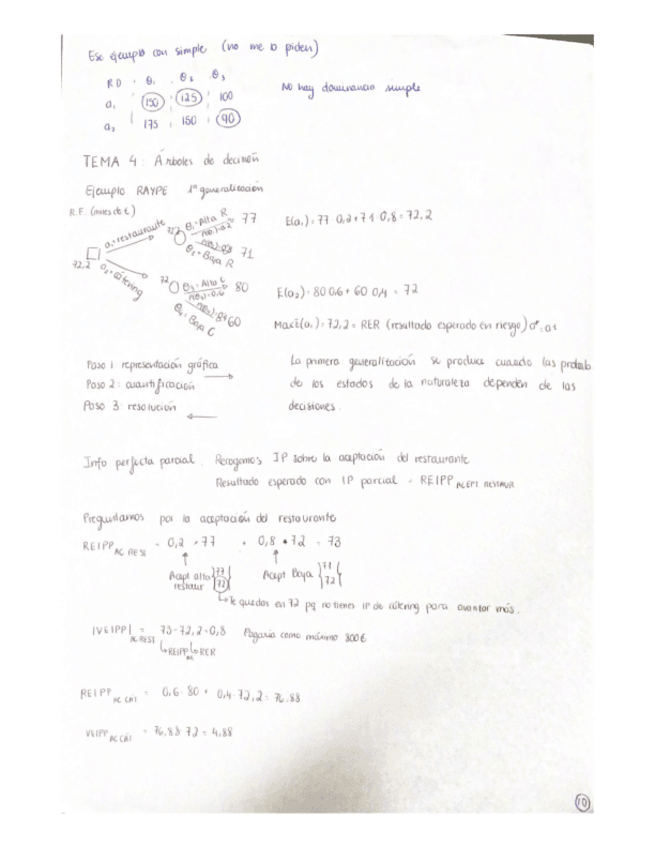 Ese ejemplo con simple (no me lo piden)
RD θ₁ θ₂ θ₃
a₁ 150 125 100
a₂ 175 150 90
No hay dominancia simple
TEMA 4: Árboles de decisión
Ejemplo RAYPE 1ª generalización
R.F. (miles de €)
a₁=restaurante
θ₁=Alta R 77
π(θ₁)=0,2
72,2
π(θ₂)=0,8
θ₂=Baja R 71
E(a₁)=77·0,2+71·0,8=72,2
72,2
a₂=cátering
72
θ₃=Alta C 80
π(θ₃)=0,6
θ₄=Baja C 60
E(a₂)=80·0,6+60·0,4=72
MaxE(a₁)=72,2=RER (resultado esperado en riesgo)
Paso 1: representación gráfica
Paso 2: cuantificación
Paso 3: resolución
La primera generalización se produce cuando las probab
de los estados de la naturaleza dependen de las
decisiones.
Info perfecta parcial. Recogemos IP sobre la aceptación del restaurante
Resultado esperado con IP parcial = REIPP ACEPT RESTAUR
Preguntamos por la aceptación del restaurante
REIPP AC REST = 0,2 · 77 + 0,8 · 72 = 73
Acept alta restaur {77 72}
Acept Baja {71 72}
Te quedas en 72 pq no tienes IP de cátering para avanzar más.
VEIPP AC REST = 73-72,2=0,8 Pagaría como máximo 800€
REIPP RER
REIPP AC CÁT = 0,6·80 + 0,4·72,2 = 76.88
VEIPP AC CÁT = 76,88-72 = 4,88
10